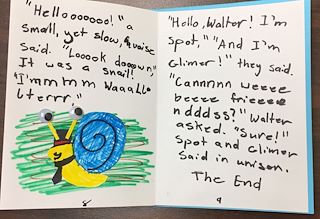 "Helloooooooo!" a
small, yet slow, voice
said. "Loook dooown,"
It was a snail!
"I'mmmm Waaallo
lterrr."
8
"Hello, Walter! I'm
Spot," "And I'm
Glimor!" they said.
"Cannnnn weeee
beeee frieeee
ndddss?" Walter
asked. "Sure!"
Spot and Glimor
said in unison.
The End
9